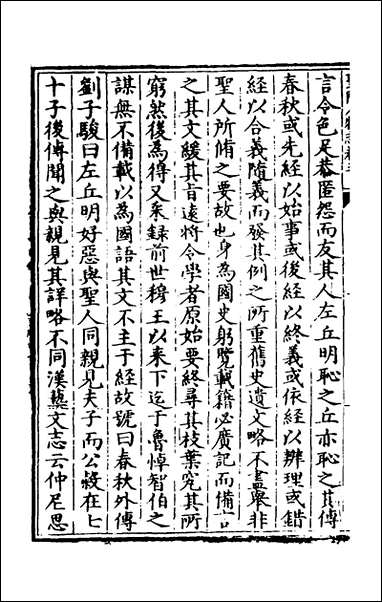 言令色足恭匿怨而友其人左丘明恥之丘亦恥之其傳
春秋或先經以始事或後經以終義或依經以辨理或錯
經以合義隨義而發其例之所重舊史遺文略不盡舉非
聖人所脩之要故也身為國史躬覽載籍必廣記而備言
之其文緩其旨遠將令學者原始要終尋其枝葉究其所
窮然後為得又采録前世穆王以來下迄于魯悼智伯之
謀無不備載以為國語其文不主于經故號曰春秋外傳
劉子駿曰左丘明好惡與聖人同親見夫子而公縠在七
十子後傳聞之與親見其詳略不同漢藝文志云仲尼思